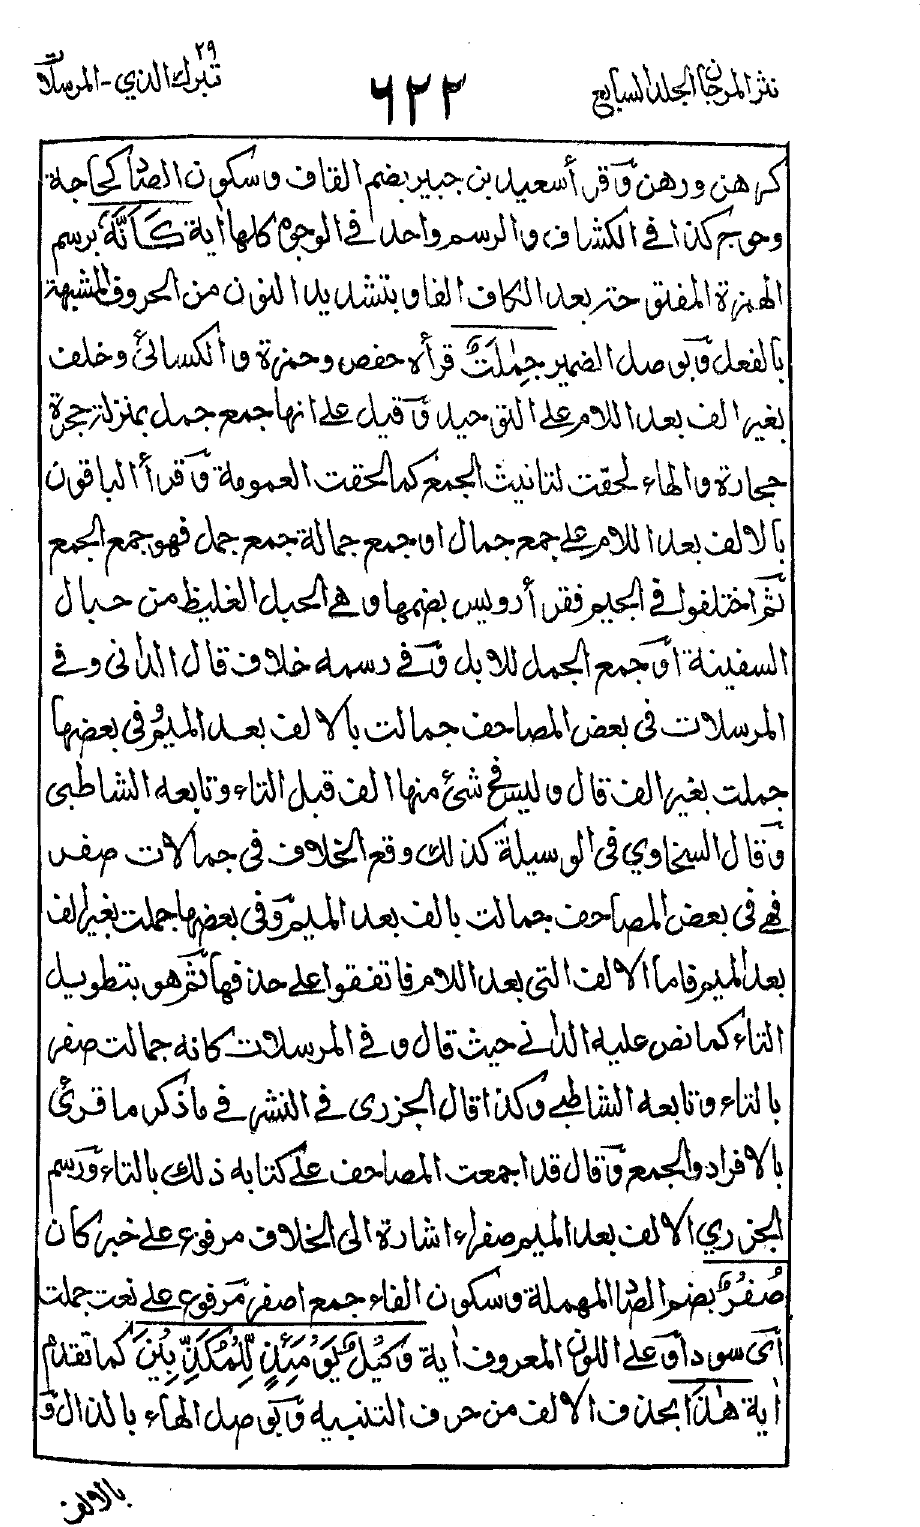 نثر المرجان الجلد السابع
٦٢٢
تبرك الذي ٢٩ - المرسلات
كرهن ورهن وقرأ سعيد بن جبير بضم القاف وسكون الصاد كحاجة
وحوج كذا في الكشاف والرسم واحد في الوجوه كلها اية كَأَنَّهٗ برسم
الهمزة المفتوحة بعد الكاف الفا وبتشديد النون من الحروف المشبهة
بالفعل وبوصل الضمير جِمٰلَتٌ قرأه حفص وحمزة والكسائي وخلف
بغير الف بعد اللام على التوحيد وقيل على انها جمع جمل بمنزلة حجرة
حجارة والهاء لحقت لتانيث الجمع كما لحقت العمومة وقرأ الباقون
بالالف بعد اللام على جمع جمال او جمع جمالة جمع جمل فهو جمع الجمع
ثم اختلفوا في الجيم فقرأ رويس بضمها وهي الحبل الغليظ من حبال
السفينة او جمع الجمل للابل وفي رسمه خلاف قال الداني وفي
المرسلات في بعض المصاحف جمالت بالالف بعد الميم وفي بعضها
جملت بغير الف قال وليس في شئ منها الف قبل التاء وتابعه الشاطبي
وقال السخاوي في الوسيلة كذلك وقع الخلاف في جمالات صفر
فهي في بعض المصاحف جمالت بالف بعد الميم وفي بعضها جملت بغير الف
بعد الميم فاما الالف التي بعد اللام فاتفقوا على حذفها ثم هو بتطويل
التاء كما نص عليه الداني حيث قال وفي المرسلات كانه جمالت صفر
بالتاء وتابعه الشاطبي وكذا قال الجزري في النشر في ما ذكر ما قرئ
بالافراد والجمع وقال قد اجمعت المصاحف على كتابه ذلك بالتاء ورسم
الجزري الالف بعد الميم صفراء اشارة الى الخلاف مرفوع على خبر كان
صُفْرٌ بضم الصاد المهملة وسكون الفاء جمع اصفر مرفوع على نعت جملت
اى سود او على اللون المعروف اية وَيْلٌ يَّوْمَئِذٍ لِّلْمُكَذِّبِيْنَ كما تقدم
اية هٰذَا بحذف الالف من حرف التنبيه وبوصل الهاء بالذال و
بالالف